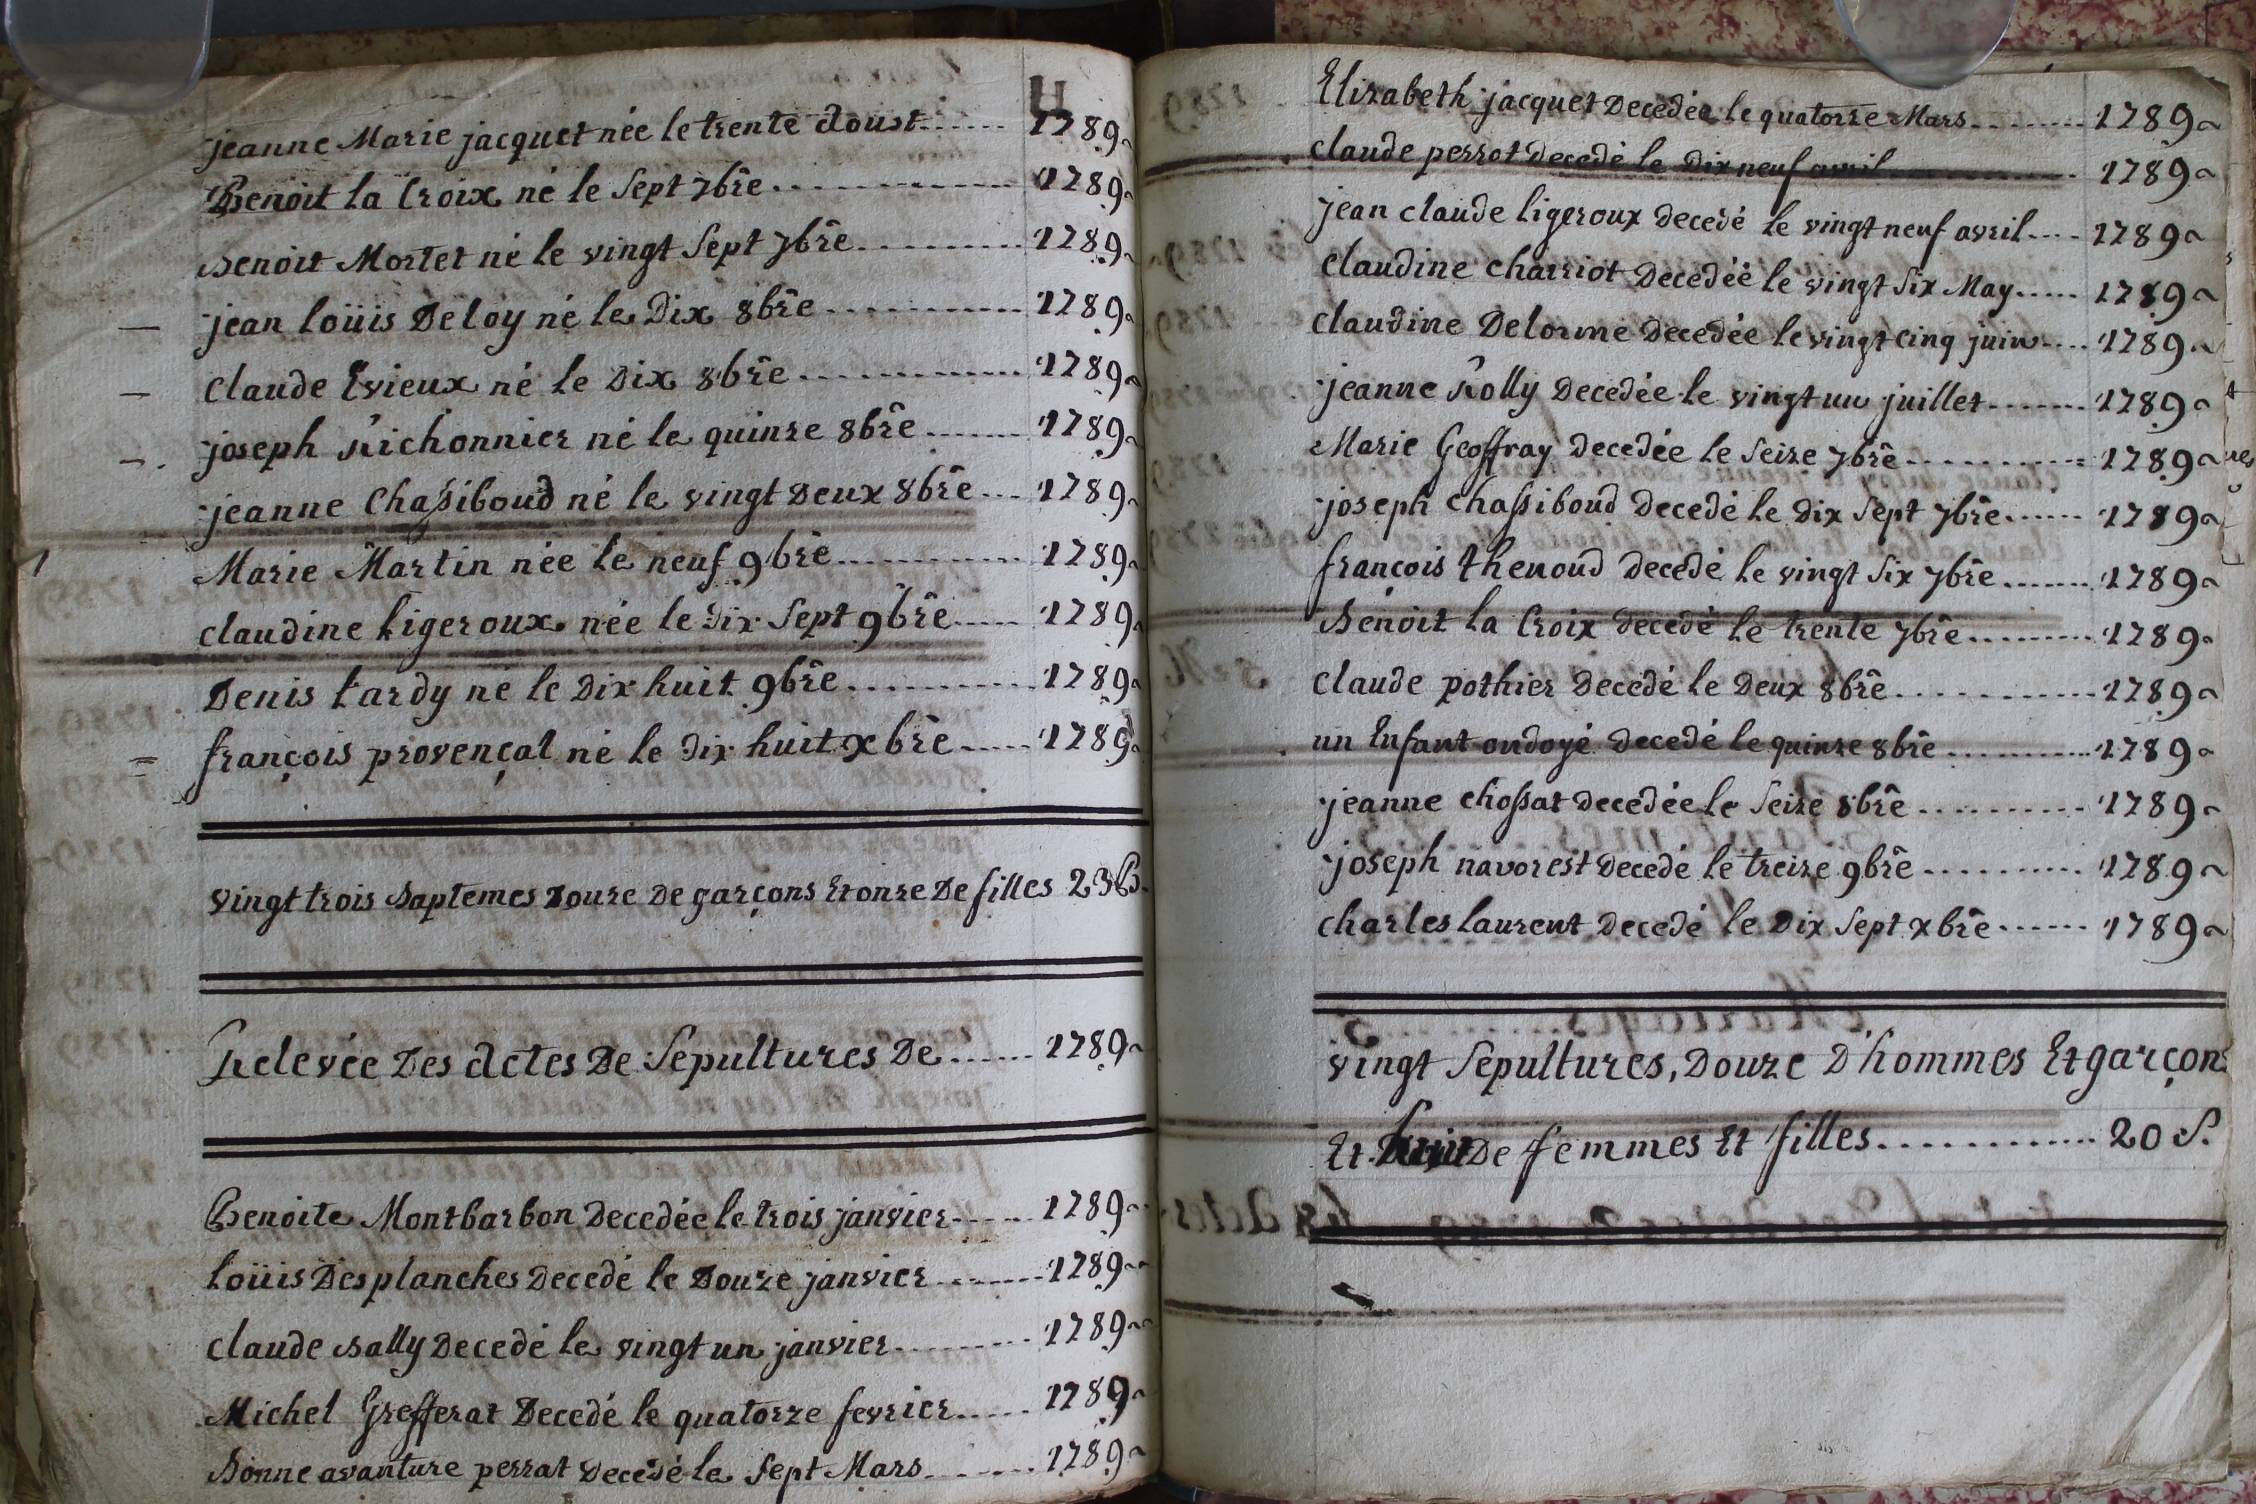 jeanne Marie jacquet née le trente Aoust...... 1789
Benoit la Croix né le Sept 7bre.............. 1789
Benoit Mortet né le vingt Sept 7bre.......... 1789
jean loüis Deloy né le Dix 8bre............ 1789
claude Evieux né le Dix 8bre.............. 1789
joseph Richonnier né le quinze 8bre....... 1789
jeanne Chassiboud né le vingt Deux 8bre.... 1789
Marie Martin née le neuf 9bre............. 1789
claudine Ligeroux née le Dix Sept 9bre..... 1789
Denis tardy né le Dix huit 9bre............ 1789
françois provençal né le dix huit xbre..... 1789
vingt trois Baptemes Douze De garçons Et onze De filles 23 B.
Relevée Des Actes De Sepultures De...... 1789
Benoite Montbarbon Decedée le trois janvier...... 1789
Loüis Desplanches Decedé le Douze janvier....... 1789
claude Bally Decedé le vingt un janvier......... 1789
Michel Grefferat Decedé le quatorze fevrier..... 1789
Bonne avanture perrat Decedé le Sept Mars....... 1789
Elizabeth jacquet Decedée le quatorze Mars........ 1789
claude perrot decedé le Dix neuf avril............ 1789
jean claude ligeroux decedé le vingt neuf avril.... 1789
claudine charriot Decedée le vingt Six May..... 1789
claudine Delorme Decedée le vingt cinq juin.... 1789
jeanne Rolly Decedée le vingt un juillet....... 1789
Marie Geoffray decedée le Seize 7bre........... 1789
joseph chassiboud decedé le Dix Sept 7bre...... 1789
françois thenoud decedé le vingt Six 7bre....... 1789
Benoit la Croix decedé le trente 7bre......... 1789
claude pothier Decedé le Deux 8bre............ 1789
un Enfant ondoyé decedé le quinze 8bre........... 1789
jeanne chossat decedée le Seize 8bre.......... 1789
joseph navorest Decedé le treize 9bre.......... 1789
charles laurent Decedé le Dix Sept xbre...... 1789
vingt Sepultures, Douze D'hommes Et garçons
Et huit De femmes Et filles............ 20 S.